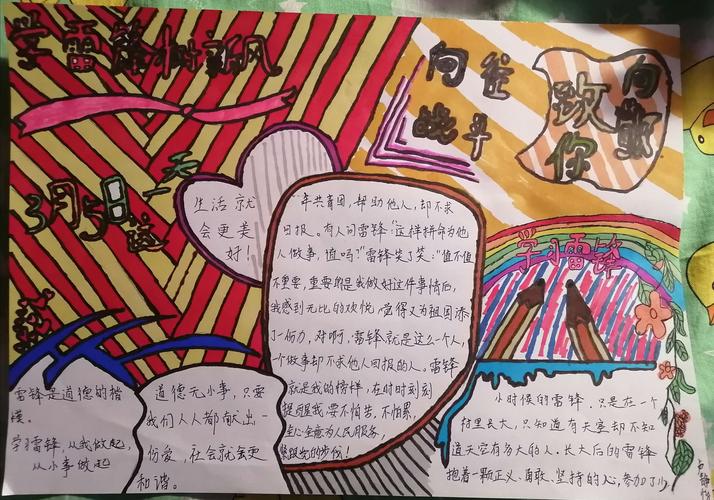 学雷锋树新风
向雷锋
战斗
向
致敬
你
3月5日这一天
生活就
会更美
好！
年共青团，帮助他人，却不求
回报。有人问雷锋："这样拼命为他
人做事，值吗？"雷锋笑了笑："值不值
不重要，重要的是我做好这件事情后，
我感到无比的欢悦，觉得又为祖国添
了一份力，对啊，雷锋就是这么一个人，
一个做事却不求他人回报的人，雷锋
就是我的榜样，在时时刻刻
提醒我要不怕苦，不怕累，
全心全意为人民服务，
紧跟党的步伐！
学习雷锋
雷锋是道德的楷
模。
学习雷锋，从我做起，
从小事做起
道德无小事，只要
我们人人都献出一
份爱，社会就会更
和谐。
小时候的雷锋，只是在一个
村里长大，只知道有天空却不知
道天空有多大的人。长大后的雷锋
抱着一颗正义、勇敢、坚持的心，参加了少